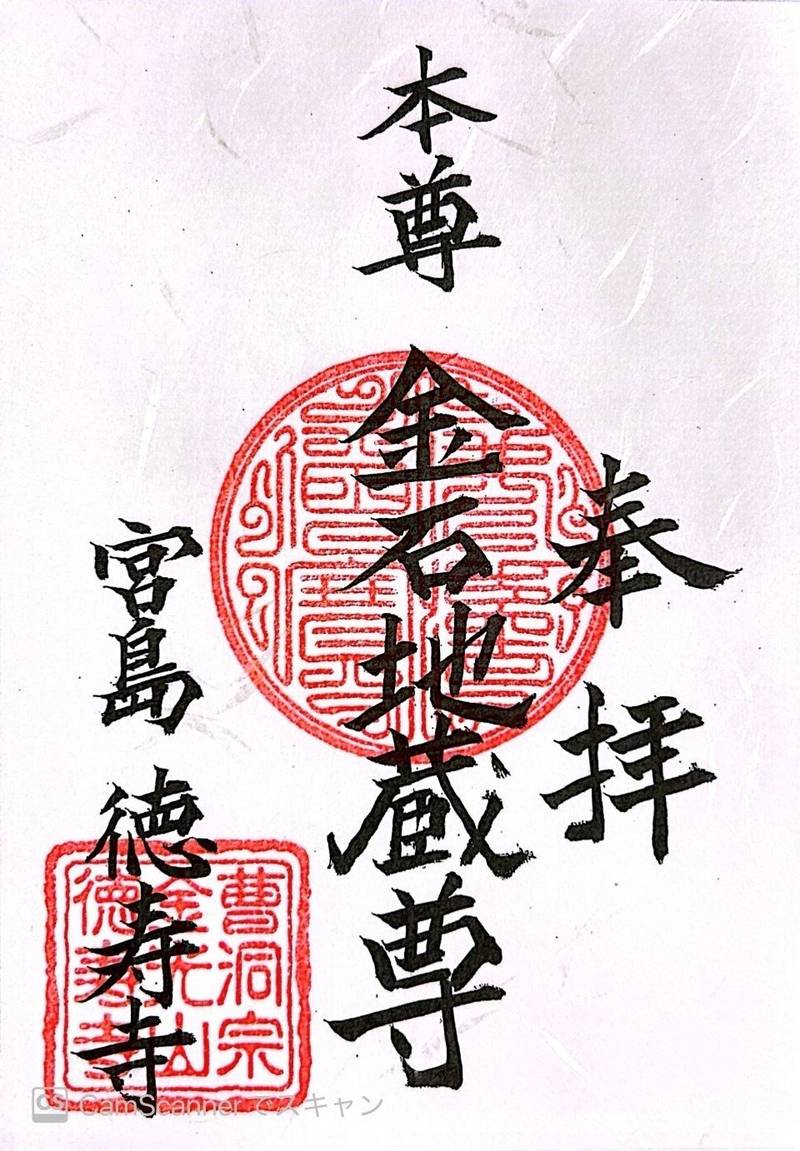 奉拝
本尊
金石地蔵尊
宮島
徳寿寺
曹洞宗
金光山
徳寿寺
CamScanner でスキャン